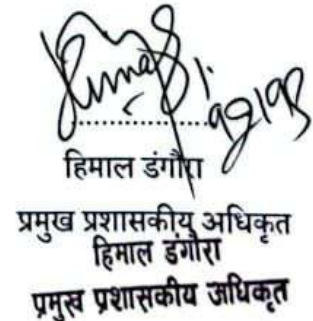 हिमाल डंगौरा
प्रमुख प्रशासकीय अधिकृत
हिमाल डंगौरा
प्रमुख प्रशासकीय अधिकृत